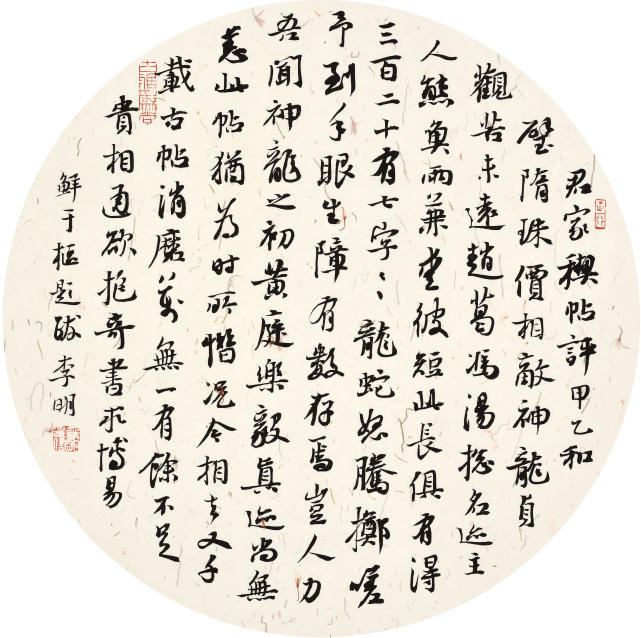 君家禊帖評甲乙和
璧隋珠價相敵神龍貞
觀苦未遠趙葛馮湯揔名迹主
人熊魚兩兼愛彼短此長俱有得
三百二十有七字〻龍蛇怒騰擲嗟
予到手眼生障有數存焉豈人力
吾聞神龍之初黃庭樂毅真迹尚無
恙此帖猶為時所惜況今相去又千
載古帖消磨萬無一有餘不足
貴相通欲抱奇書求博易
鮮于樞題跋 李明